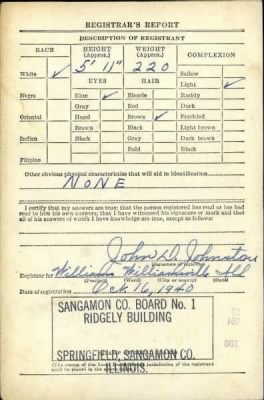 REGISTRAR'S REPORT
DESCRIPTION OF REGISTRANT
RACE HEIGHT (Approx.) WEIGHT (Approx.) COMPLEXION
White ✓ 5' 11" 220 Sallow
EYES HAIR Light ✓
Negro Blue ✓ Blonde Ruddy
Gray Red Dark
Oriental Hazel Brown ✓ Freckled
Brown Gray Light brown
Indian Black Black Dark brown
Bald Black
Filipino
Other obvious physical characteristics that will aid in identification
NONE
I certify that my answers are true; that the person registered has read or has had
read to him his own answers; that I have witnessed his signature or mark and that
all of his answers of which I have knowledge are true, except as follows:
John D. Johnston
(Signature of registrar)
Registrar for Williams Williamsville Ill
(Precinct) (Ward) (City or county) (State)
Date of registration Oct. 16, 1940
SANGAMON CO. BOARD No. 1
RIDGELY BUILDING
SPRINGFIELD, SANGAMON CO.
ILLINOIS.